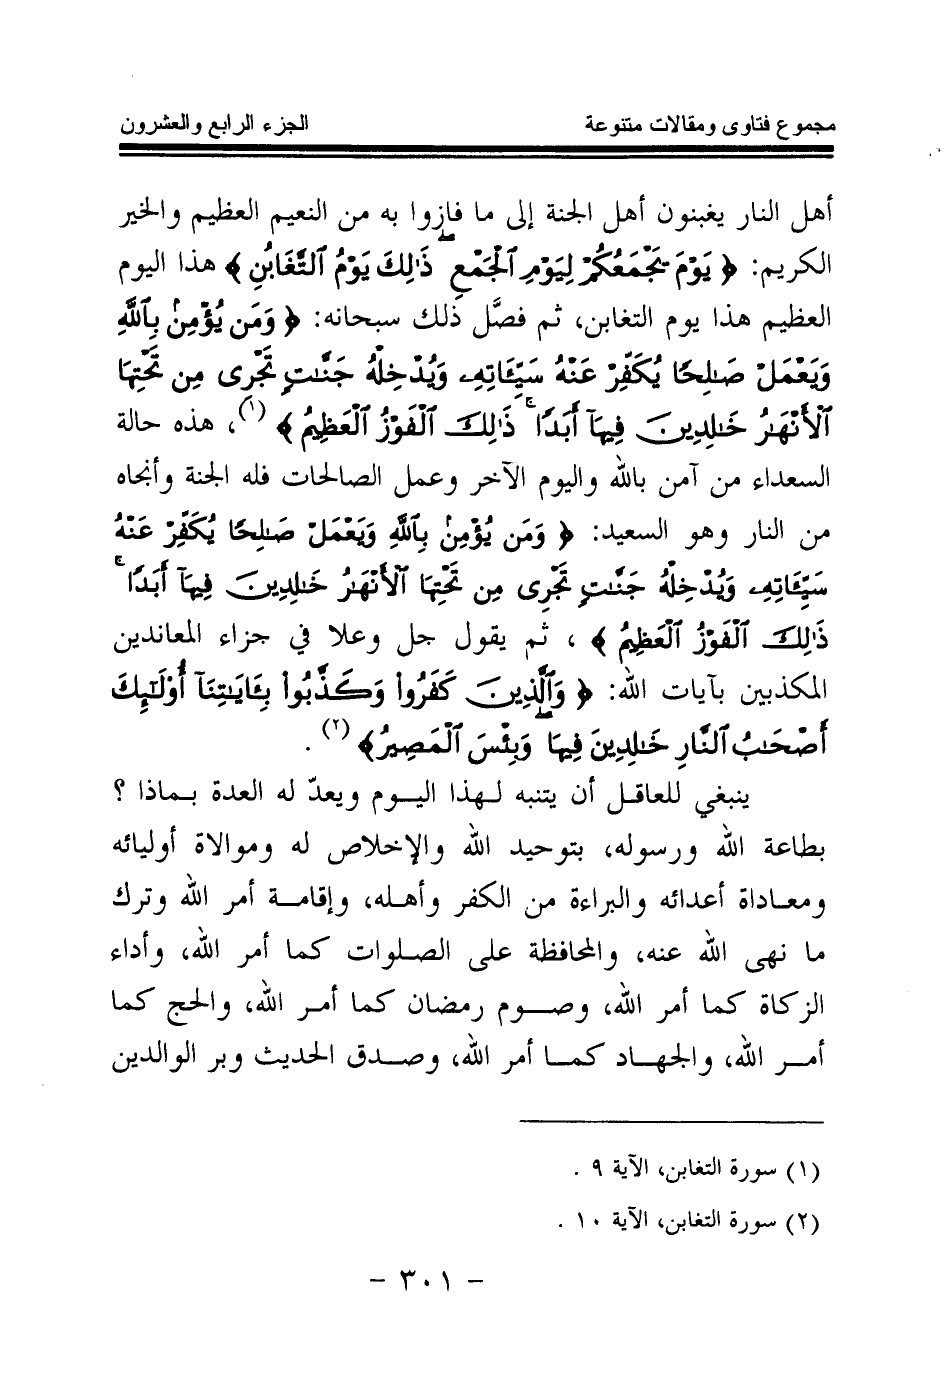 مجموع فتاوى ومقالات متنوعة الجزء الرابع والعشرون
أهل النار يغبنون أهل الجنة إلى ما فازوا به من النعيم العظيم والخير
الكريم: ﴿ يَوْمَ يَجْمَعُكُمْ لِيَوْمِ ٱلْجَمْعِ ۖ ذَٰلِكَ يَوْمُ ٱلتَّغَابُنِ ﴾ هذا اليوم
العظيم هذا يوم التغابن، ثم فصَّل ذلك سبحانه: ﴿ وَمَن يُؤْمِنۢ بِٱللَّهِ
وَيَعْمَلْ صَٰلِحًا يُكَفِّرْ عَنْهُ سَيِّـَٔاتِهِۦ وَيُدْخِلْهُ جَنَّٰتٍ تَجْرِى مِن تَحْتِهَا
ٱلْأَنْهَٰرُ خَٰلِدِينَ فِيهَآ أَبَدًا ۚ ذَٰلِكَ ٱلْفَوْزُ ٱلْعَظِيمُ ﴾ (١)، هذه حالة
السعداء من آمن بالله واليوم الآخر وعمل الصالحات فله الجنة وأنجاه
من النار وهو السعيد: ﴿ وَمَن يُؤْمِنۢ بِٱللَّهِ وَيَعْمَلْ صَٰلِحًا يُكَفِّرْ عَنْهُ
سَيِّـَٔاتِهِۦ وَيُدْخِلْهُ جَنَّٰتٍ تَجْرِى مِن تَحْتِهَا ٱلْأَنْهَٰرُ خَٰلِدِينَ فِيهَآ أَبَدًا ۚ
ذَٰلِكَ ٱلْفَوْزُ ٱلْعَظِيمُ ﴾ ، ثم يقول جل وعلا في جزاء المعاندين
المكذبين بآيات الله: ﴿ وَٱلَّذِينَ كَفَرُوا۟ وَكَذَّبُوا۟ بِـَٔايَٰتِنَآ أُو۟لَٰٓئِكَ
أَصْحَٰبُ ٱلنَّارِ خَٰلِدِينَ فِيهَا ۖ وَبِئْسَ ٱلْمَصِيرُ ﴾ (٢) .
ينبغي للعاقل أن يتنبه لهذا اليوم ويعدّ له العدة بماذا ؟
بطاعة الله ورسوله، بتوحيد الله والإخلاص له وموالاة أوليائه
ومعاداة أعدائه والبراءة من الكفر وأهله، وإقامة أمر الله وترك
ما نهى الله عنه، والمحافظة على الصلوات كما أمر الله، وأداء
الزكاة كما أمر الله، وصوم رمضان كما أمر الله، والحج كما
أمر الله، والجهاد كما أمر الله، وصدق الحديث وبر الوالدين
(١) سورة التغابن، الآية ٩ .
(٢) سورة التغابن، الآية ١٠ .
- ٣٠١ -